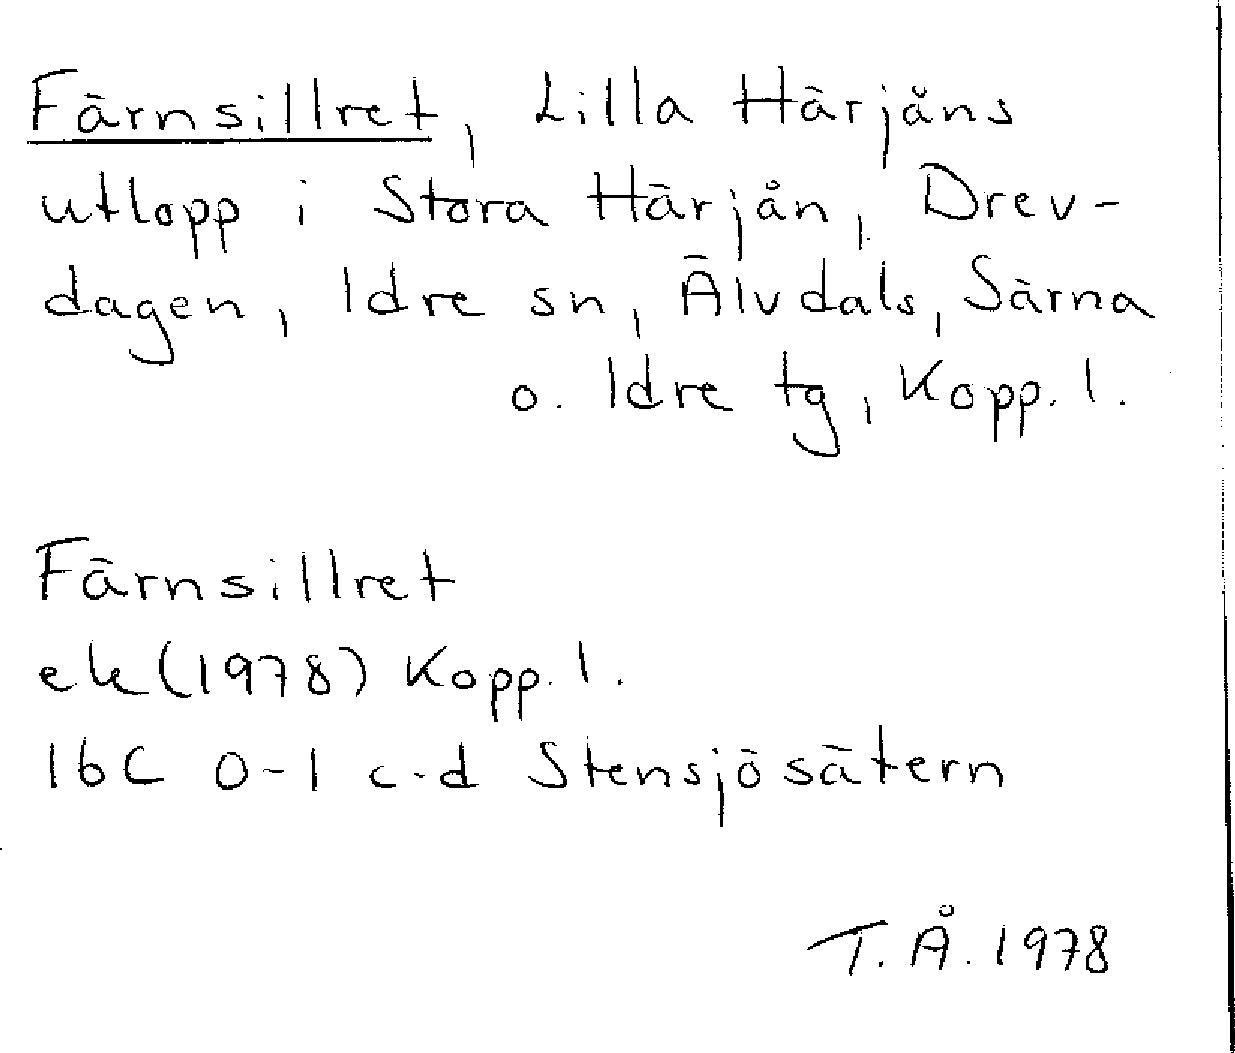 Färnsillret, Lilla Härjåns
utlopp i Stora Härjån, Drev-
dagen, Idre sn, Älvdals, Särna
o. Idre tg, Kopp. l.
Färnsillret
ek (1978) Kopp. l.
16C 0-1 c-d Stensjösätern
T. Å. 1978